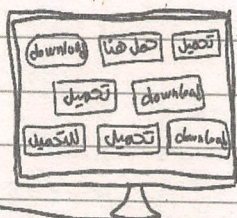 download حمل هنا تحميل
تحميل download
للتحميل تحميل download